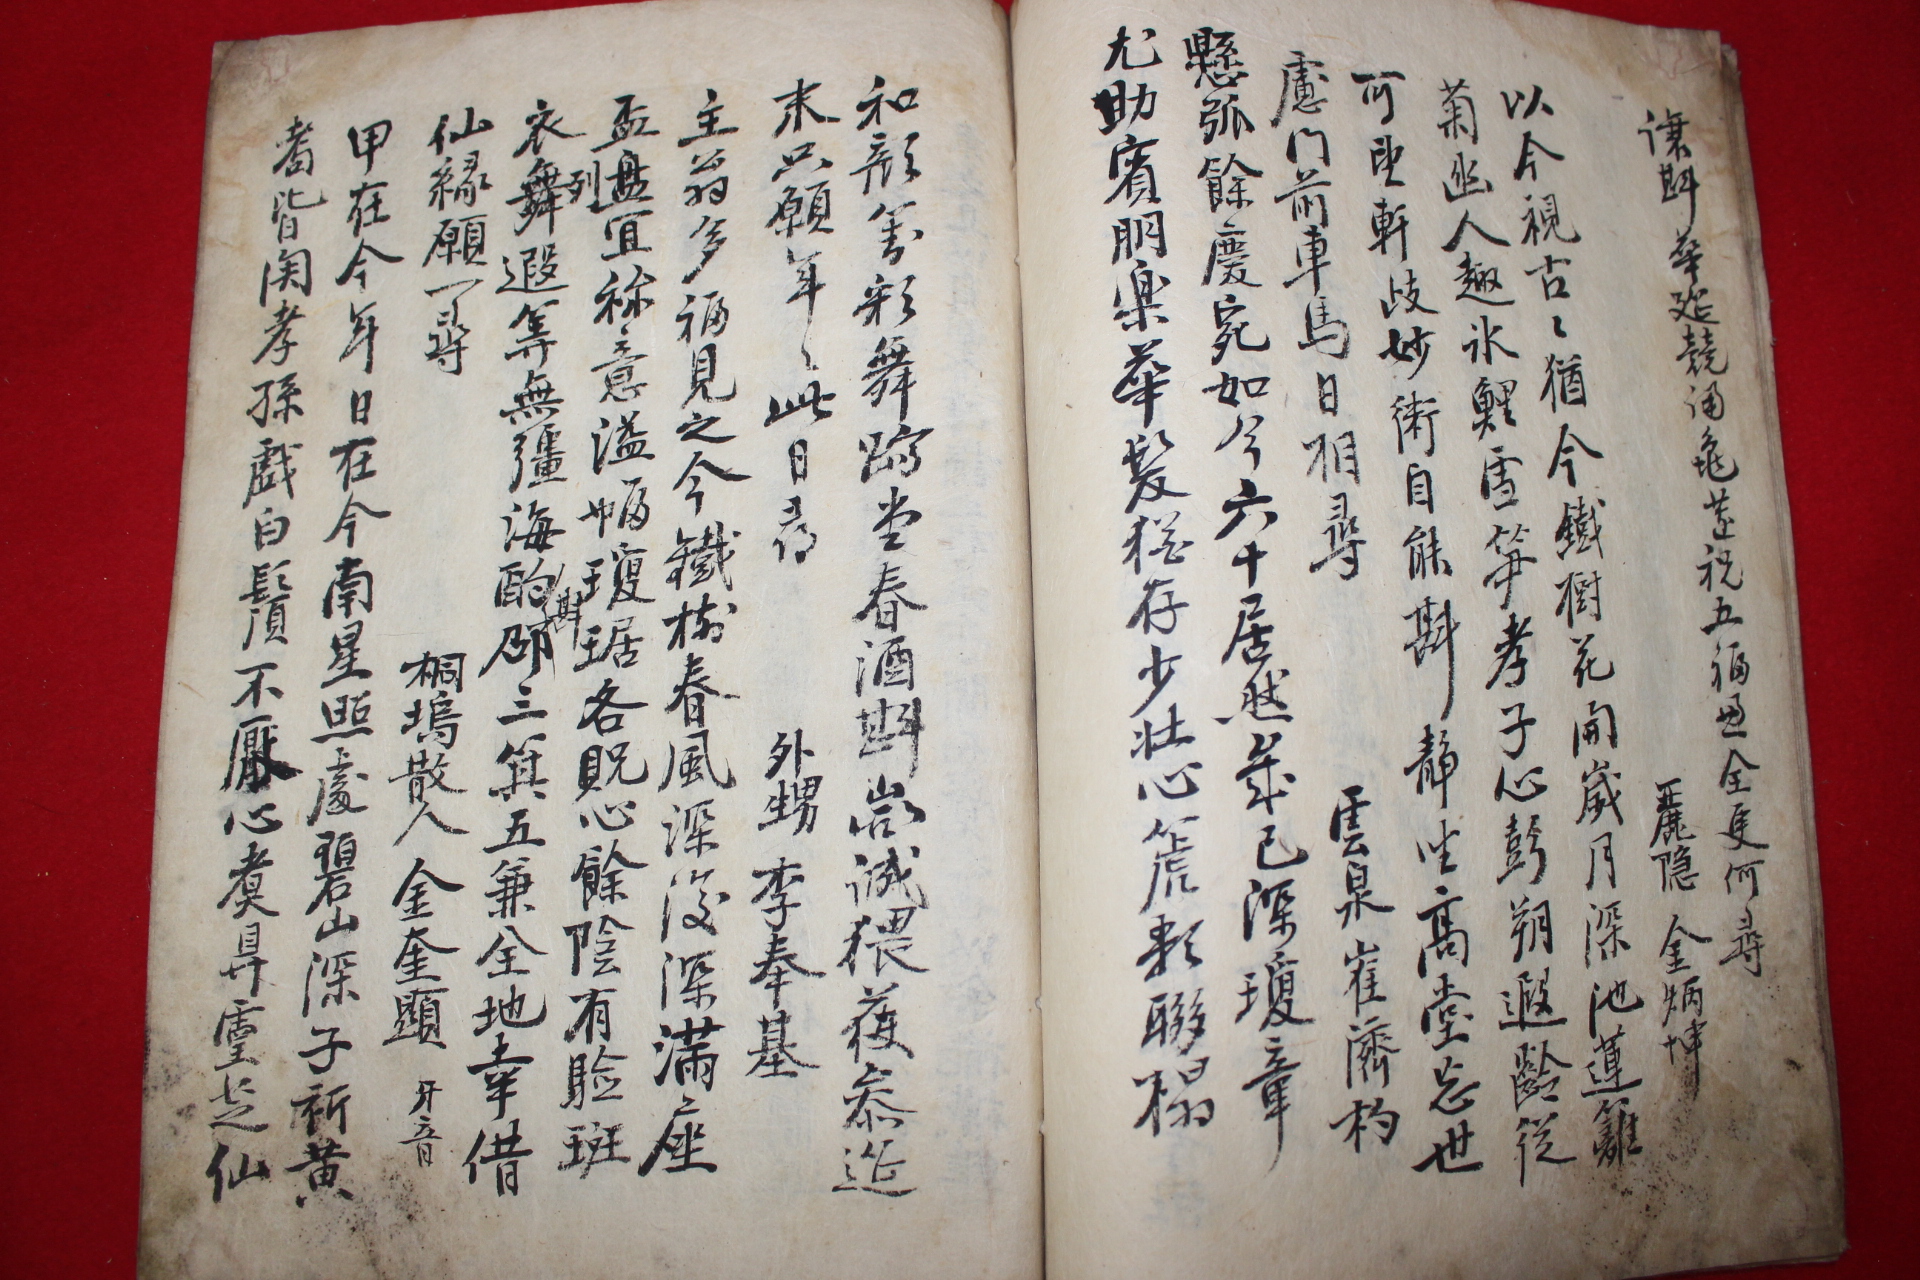 讓斟華筵競誦龜蓮祝五福皿全更何尋
麗隱 金炳坤
以今視古〻猶今鐵樹花開歲月深池蓮籬
菊幽人趣氷鯉雪筍孝子心彭朔遐齡從
可卽軒歧妙術自能斟靜坐高堂忘世
慮門前車馬日相尋
雲泉 崔濟杓
懸弧餘慶宛如今六十居然歲已深瓊章
尤助賓朋樂華髮猶存少壯心箎 聯榻
和彩舞 堂春酒斟 誠猥荷恭筵
末只願年〻此日尋
外甥 李奉基
主翁多福見之今鐵樹春風深復深滿座
盃盤列宜稱意溢幅瓊琚各貺心餘陰有驗斑
衣舞遐等無彊海酌斟邵三箕五兼全地幸借
仙緣願一尋
桐塢散人 金奎顯 牙音
甲在今年日在今南星照處碧山深子祈黃
耉皆闵孝孫戱白鬚不厭心煮鼎靈芝仙